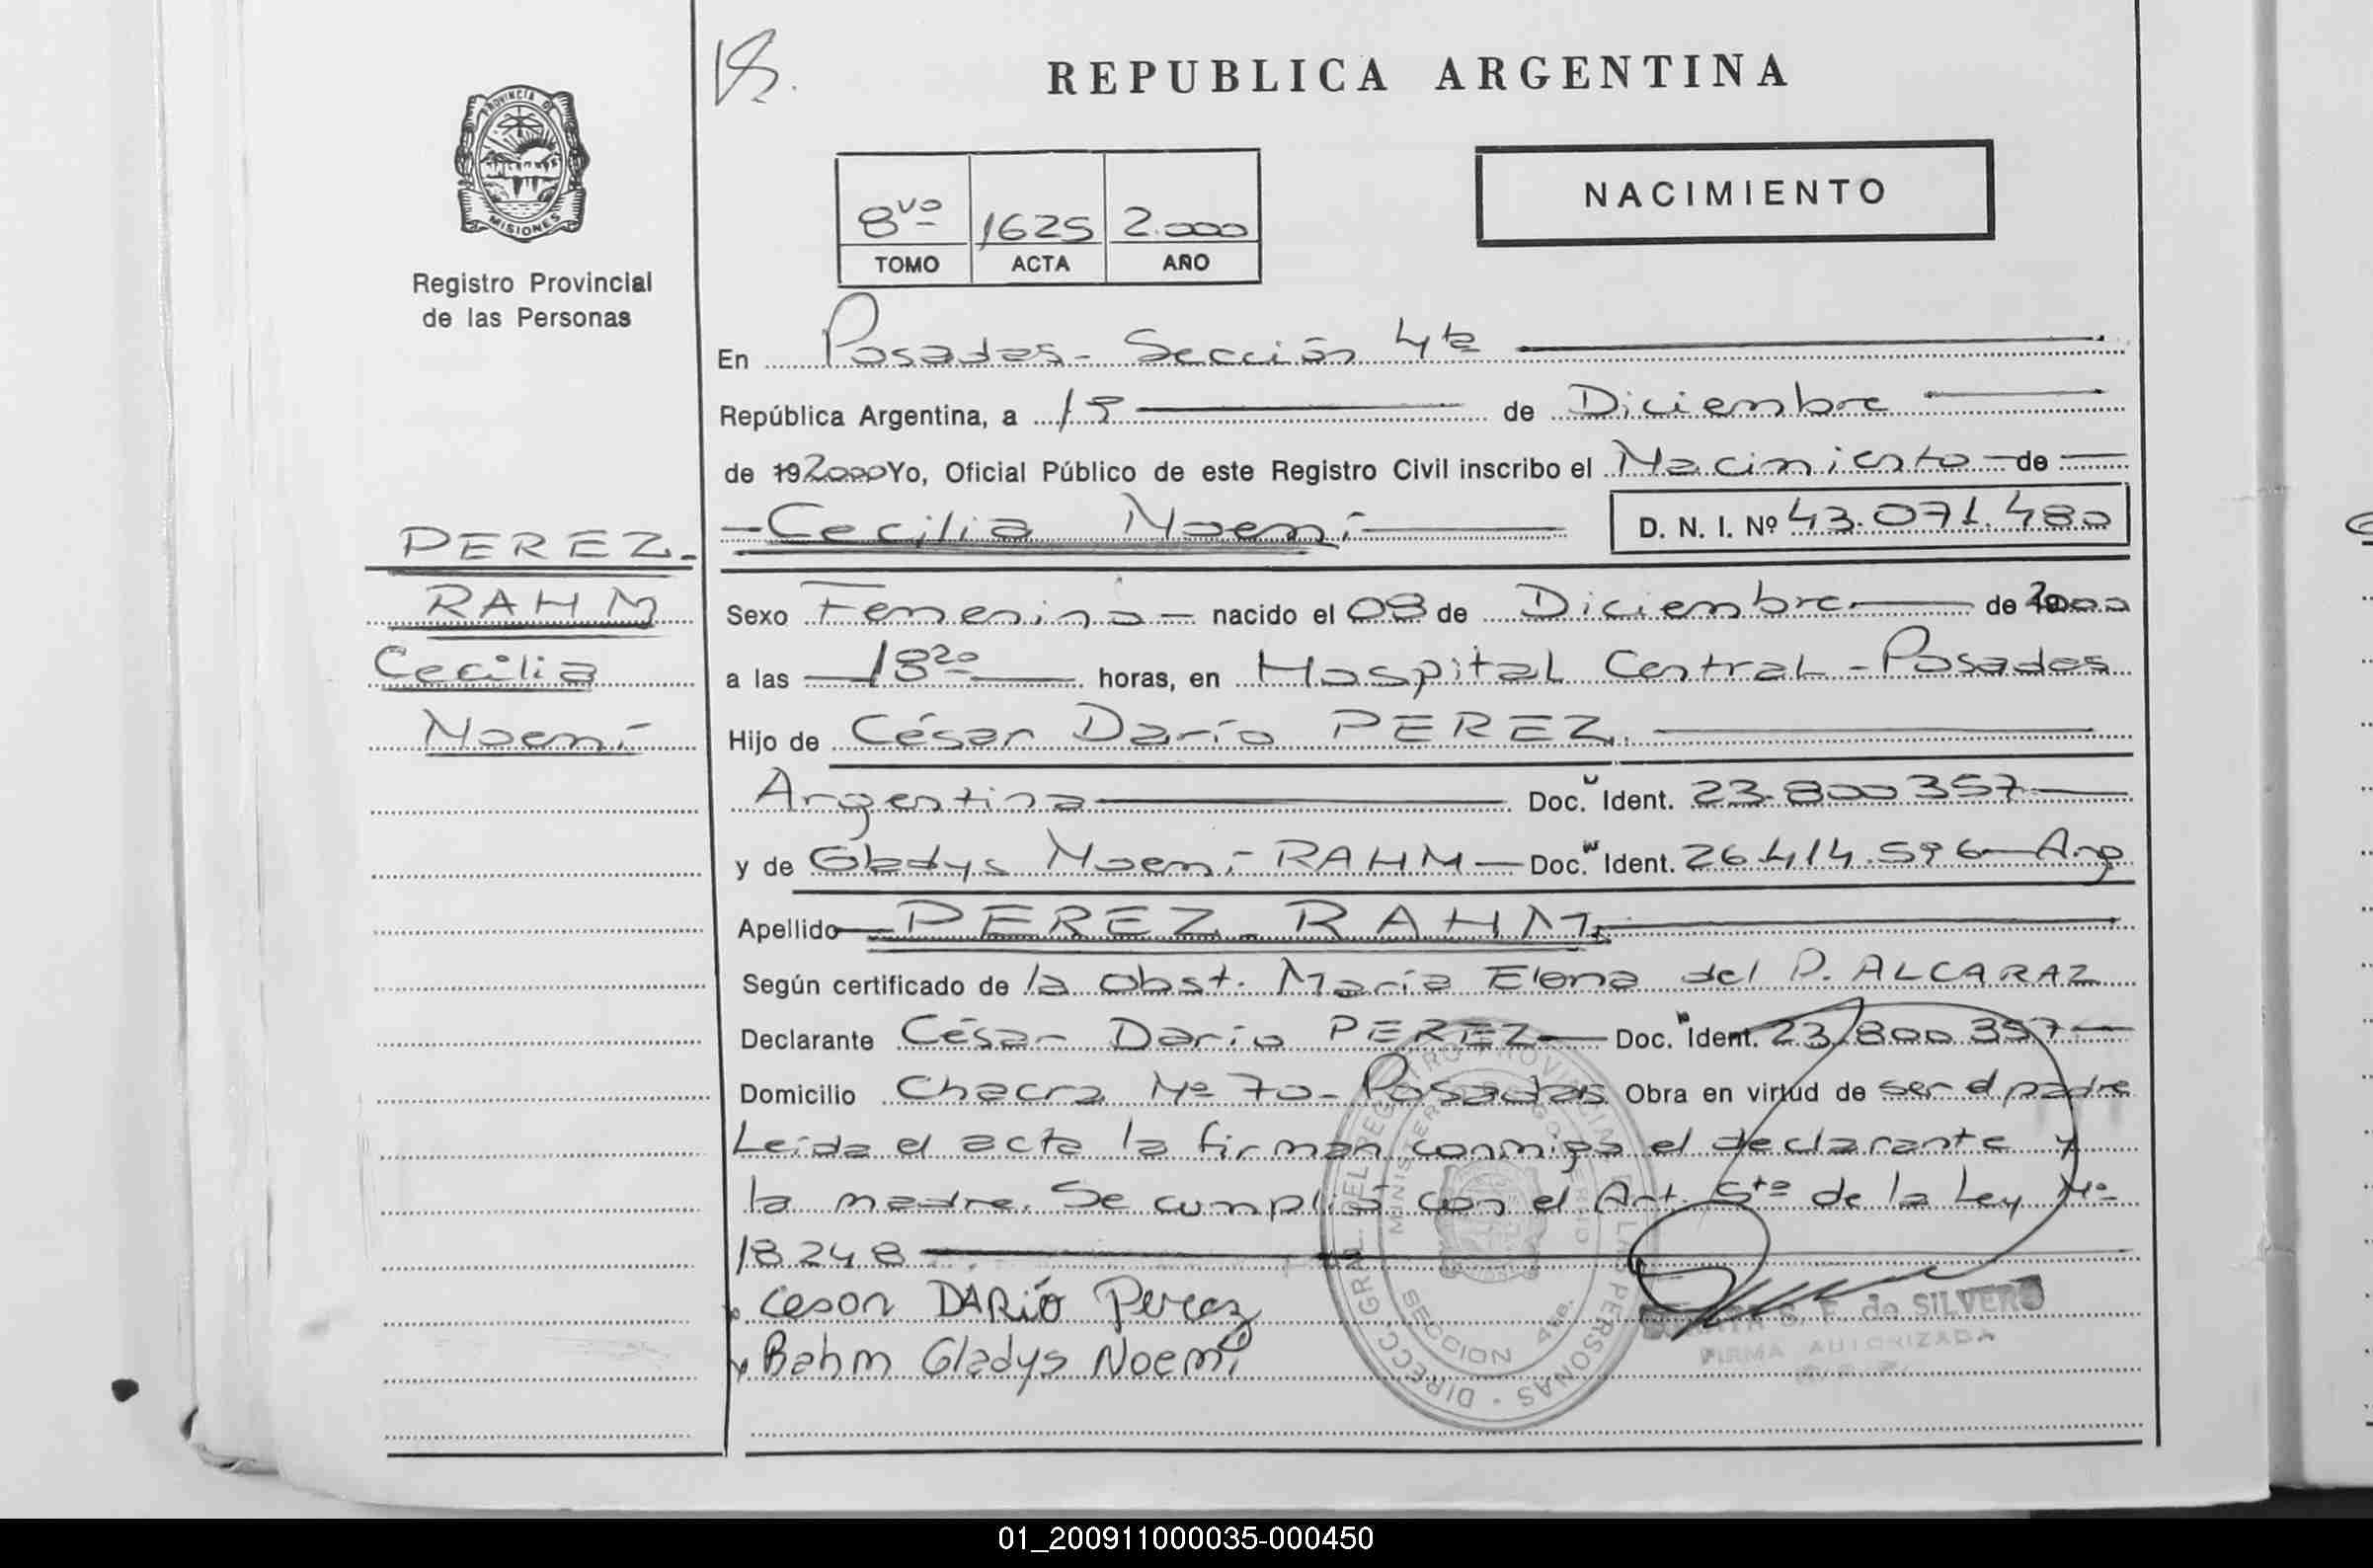 PROVINCIA DE
MISIONES
Registro Provincial
de las Personas
PEREZ-
RAHM
Cecilia
Noemí
REPUBLICA ARGENTINA
NACIMIENTO
8vo 1625 2.000
TOMO ACTA AÑO
En Posadas- Sección 4ta
República Argentina, a 19 de Diciembre
de 192000 Yo, Oficial Público de este Registro Civil inscribo el Nacimiento de
-Cecilia Noemí D. N. I. Nº 43.071.480
Sexo Femenino - nacido el 08 de Diciembre de 2000
a las 18 20 horas, en Hospital Central - Posadas
Hijo de César Darío PEREZ.
Argentina Doc. Ident. 23.800.357
y de Gladys Noemí RAHM - Doc. Ident. 26.414.596 - Arg
Apellido PEREZ RAHM
Según certificado de la Obst. María Elena del P. ALCARAZ
Declarante César Darío PEREZ - Doc. Ident. 23.800.357
Domicilio Chacra Nº 70- Posadas Obra en virtud de ser el padre
Leída el acta la firman conmigo el declarante y
la madre. Se cumplió con el Art. 5to de la Ley Nº
18.248
Cesar DARío Perez
Rahm Gladys Noemi
DIRECC. GRAL. DEL REGISTRO PROVINCIAL DE LAS PERSONAS
SECCION 4ta.
S. F. de SILVERO
FIRMA AUTORIZADA
01_200911000035-000450